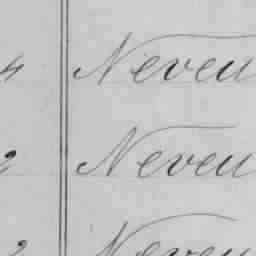 4 Neveu
2 Neveu
2 Neveu